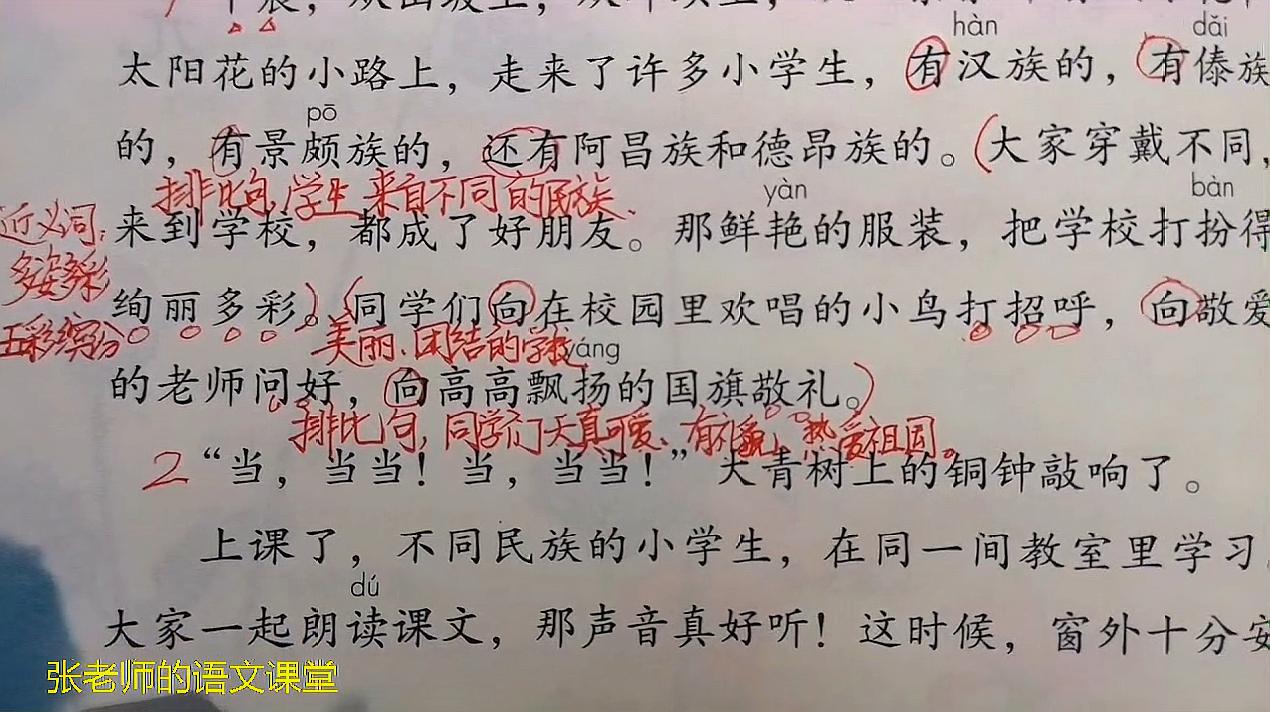 早晨，从山坡上，从坪坝上，
hàn dǎi
太阳花的小路上，走来了许多小学生，有汉族的，有傣族
pō
的，有景颇族的，还有阿昌族和德昂族的。（大家穿戴不同，
排比句，学生来自不同的民族。
yàn bàn
近义词： 来到学校，都成了好朋友。那鲜艳的服装，把学校打扮得
多姿多彩
绚丽多彩。）（同学们向在校园里欢唱的小鸟打招呼，向敬爱
五彩缤纷 美丽、团结的学校 yáng
的老师问好，向高高飘扬的国旗敬礼。）
排比句，同学们天真可爱、有礼貌、热爱祖国。
2 “当，当当！当，当当！”大青树上的铜钟敲响了。
上课了，不同民族的小学生，在同一间教室里学习。
dú
大家一起朗读课文，那声音真好听！这时候，窗外十分安
张老师的语文课堂